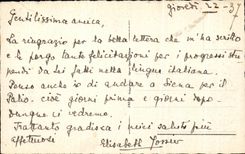 giovedì 22-37
Gentilissima amica,
La ringrazio per la bella lettera che m'ha scritto
e le porgo tante felicitazioni per i progressi stu-
pendi da lei fatti nella lingua italiana.
Penso anch'io di andare a Siena per il
Palio, cioè giorni prima e giorni dopo.
Dunque ci vedremo.
Frattanto gradisca i miei saluti più
affettuosi
Elisabeth